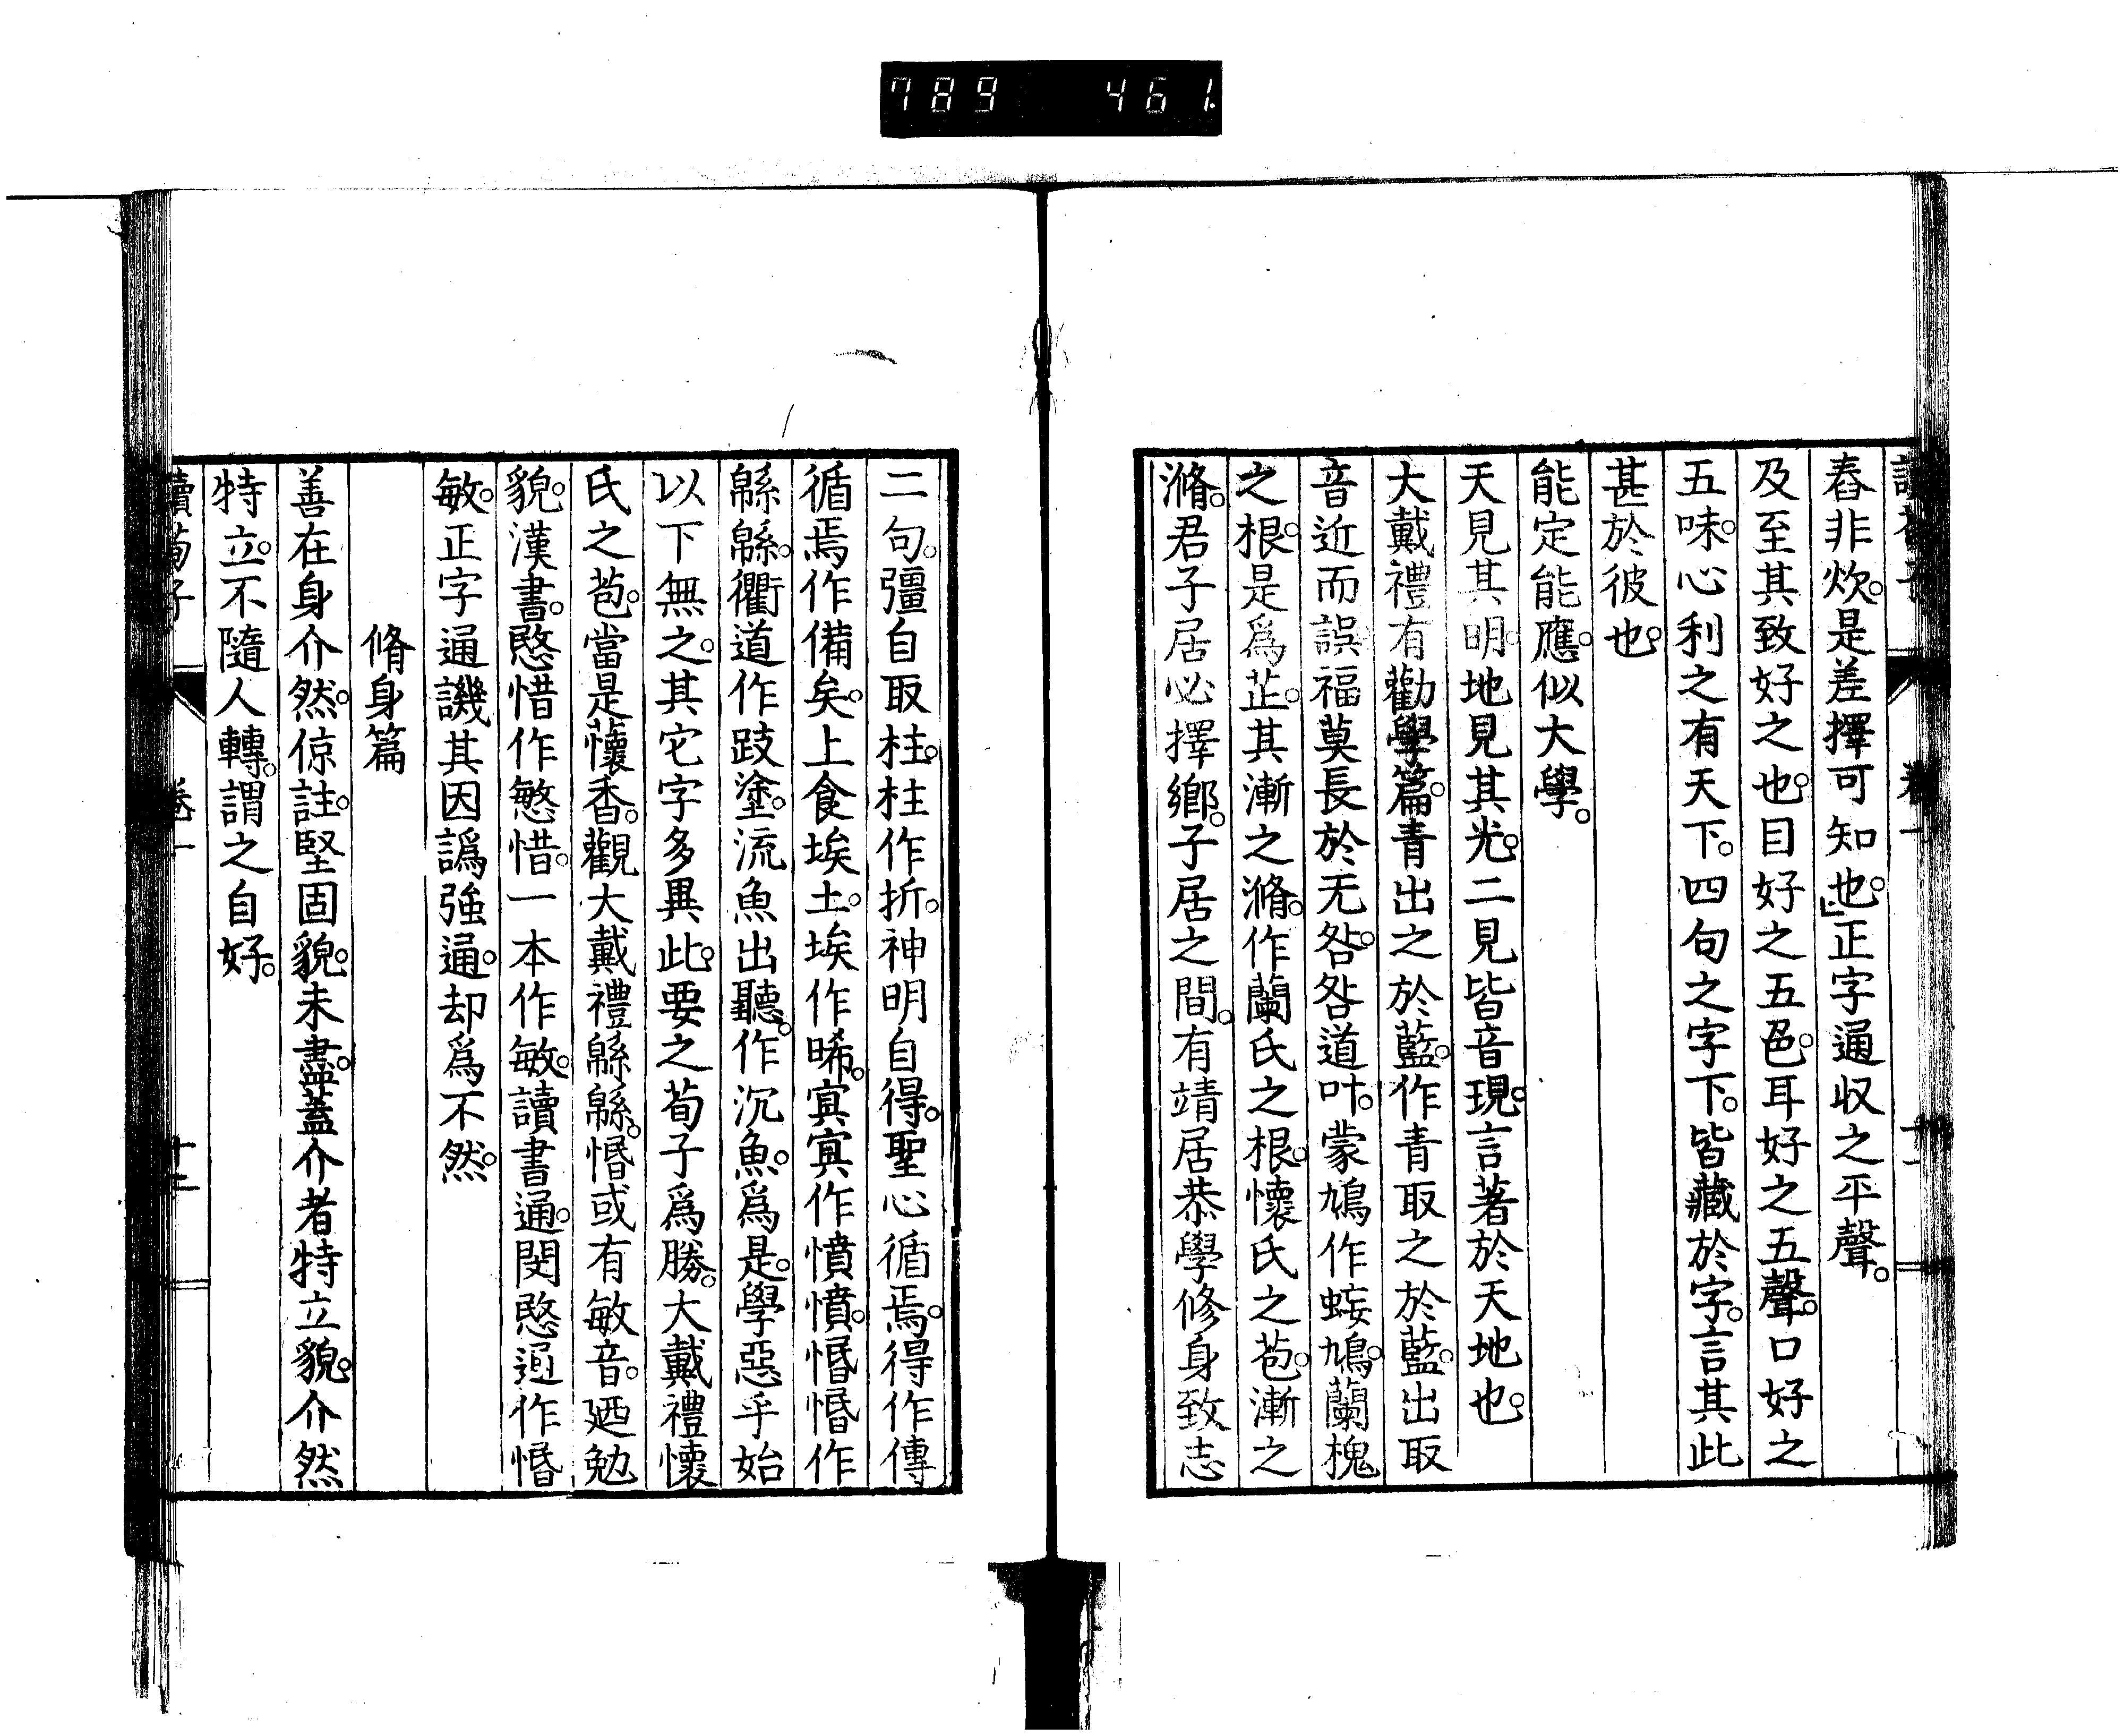 789 461
舂非炊。是差擇可知也。」正字通收之平聲。
及至其致好之也。目好之五色。耳好之五聲。口好之
五味。心利之有天下。四句之字下。皆藏於字。言其此
甚於彼也。
能定能應。似大學。
天見其明。地見其光。二見皆音現。言著於天地也。
大戴禮有勸學篇。青出之於藍。作青取之於藍。出取
音近而誤。福莫長於无咎。咎道叶。蒙鳩作蛣鳩。蘭槐
之根。是爲芷。其漸之滫。作蘭氏之根。懷氏之苞。漸之
滫。君子居必擇鄉。子居之間。有靖居恭學修身致志
二句。彊自取柱。柱作折。神明自得。聖心循焉。得作傳
循焉作備矣。上食埃土。埃作晞。冥冥作憤憤。惛惛作
緜緜。衢道作跂塗。流魚出聽。作沉魚。爲是。學惡乎始
以下無之。其它字多異此。要之荀子爲勝。大戴禮懷
氏之苞。當是蘹香。觀大戴禮緜緜。惛或有敏音。廼勉
貌。漢書。愍惜作慜惜。一本作敏。讀書通。閔愍通作惛
敏。正字通譏其因譌強通。却爲不然。
脩身篇
善在身介然。倞註。堅固貌。未盡。蓋介者特立貌。介然
特立。不隨人轉。謂之自好。
讀荀子 卷一 十二